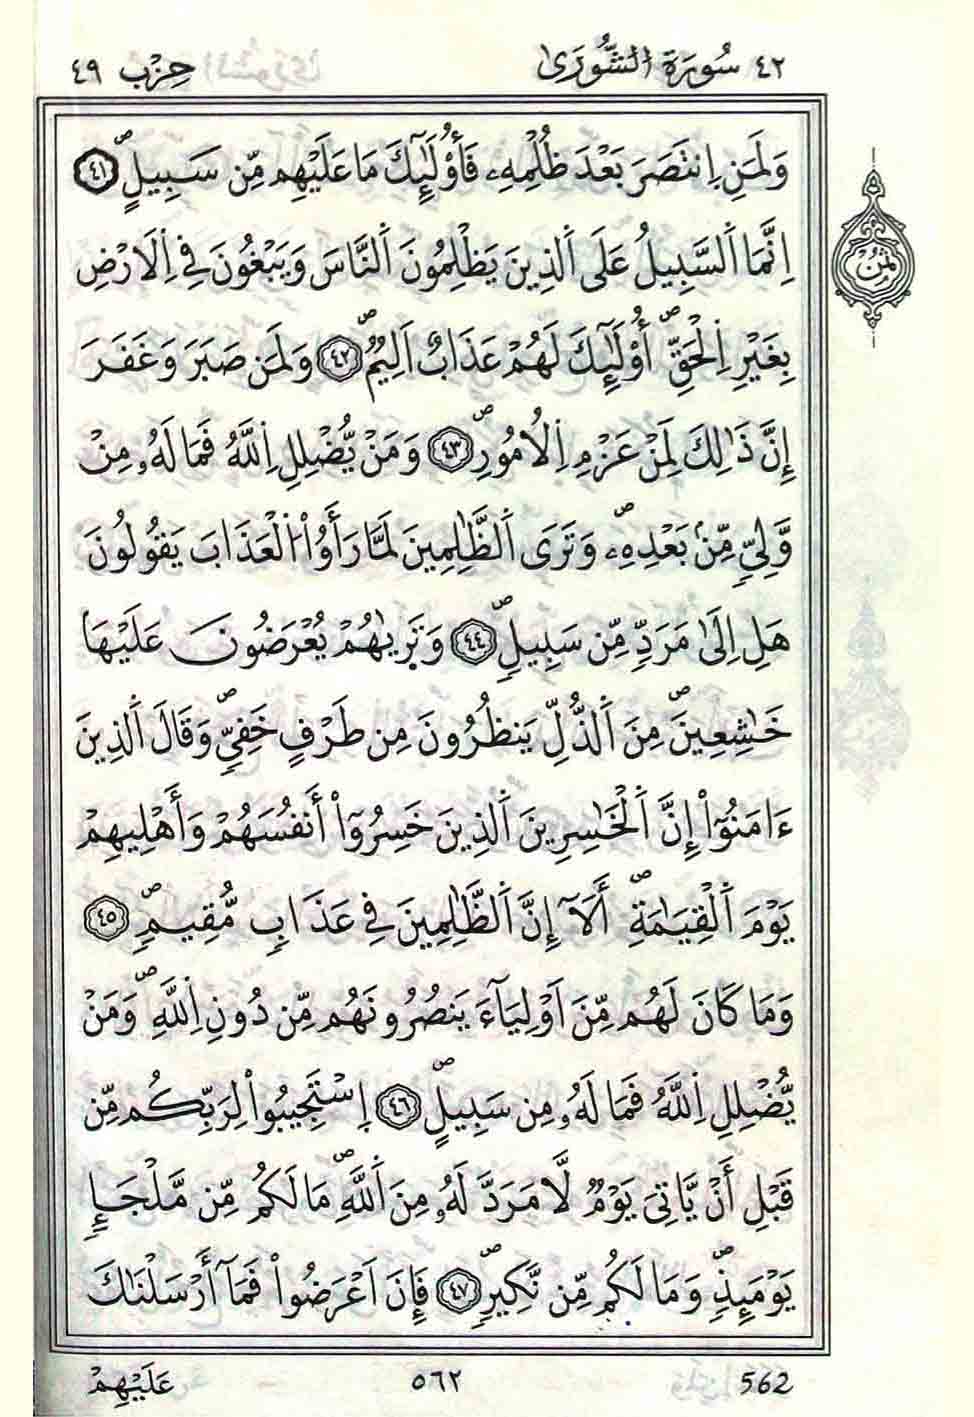 ٤٢ سُورَةُ الشُّورَىٰ حِزْب ٤٩
وَلَمَنِ اِ۪نتَصَرَ بَعْدَ ظُلْمِهِۦ فَأُوْلَٰٓئِكَ مَا عَلَيْهِم مِّن سَبِيلٍۖ ٤١
اِنَّمَا اَ۬لسَّبِيلُ عَلَى اَ۬لذِينَ يَظْلِمُونَ اَ۬لنَّاسَ وَيَبْغُونَ فِي اِ۬لَارْضِ
بِغَيْرِ اِ۬لْحَقِّۖ أُوْلَٰٓئِكَ لَهُمْ عَذَابٌ اَلِيمٌۖ ٤٢ وَلَمَن صَبَرَ وَغَفَرَ
إِنَّ ذَٰلِكَ لَمِنْ عَزْمِ اِ۬لُامُورِۖ ٤٣ وَمَنْ يُّضْلِلِ اِ۬للَّهُ فَمَا لَهُۥ مِنْ
وَّلِيّٖ مِّنۢ بَعْدِهِۦۖ وَتَرَى اَ۬لظَّٰلِمِينَ لَمَّا رَأَوُاْ اُ۬لْعَذَابَ يَقُولُونَ
هَلِ اِلَىٰ مَرَدّٖ مِّن سَبِيلٖۖ ٤٤ وَتَر۪يٰهُمْ يُعْرَضُونَ عَلَيْهَا
خَٰشِعِينَۖ مِنَ اَ۬لذُّلِّ يَنظُرُونَ مِن طَرْفٍ خَفِيّٖۖ وَقَالَ اَ۬لذِينَ
ءَامَنُوٓاْ إِنَّ اَ۬لْخَٰسِرِينَ اَ۬لذِينَ خَسِرُوٓاْ أَنفُسَهُمْ وَأَهْلِيهِمْ
يَوْمَ اَ۬لْقِيَٰمَةِۖ أَلَآ إِنَّ اَ۬لظَّٰلِمِينَ فِي عَذَابٖ مُّقِيمٖۖ ٤٥
وَمَا كَانَ لَهُم مِّنَ اَوْلِيَآءَ يَنصُرُونَهُم مِّن دُونِ اِ۬للَّهِۖ وَمَنْ
يُّضْلِلِ اِ۬للَّهُ فَمَا لَهُۥ مِن سَبِيلٍۖ ٤٦ اِ۪سْتَجِيبُواْ لِرَبِّكُم مِّن
قَبْلِ أَنْ يَّاتِيَ يَوْمٌ لَّا مَرَدَّ لَهُۥ مِنَ اَ۬للَّهِۖ مَا لَكُم مِّن مَّلْجَإٖ
يَوْمَئِذٖۖ وَمَا لَكُم مِّن نَّكِيرٖۖ ٤٧ فَإِنَ اَعْرَضُواْ فَمَآ أَرْسَلْنَٰكَ
ثمن
عَلَيْهِمْ ٥٦٢ 562